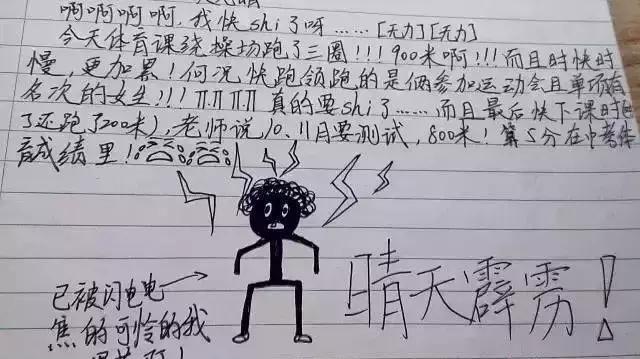 啊啊啊啊啊,我快shi了呀……[无力][无力]
今天体育课绕操场跑了三圈!!!900米啊!!!而且时快时
慢,更加累!何况,快跑领跑的是俩参加运动会且单项有
名次的女生!!!TTTTTTTT真的要shi了……而且最后快下课时
了还跑了200米),老师说10、11月要测试,800米!算5分在中考体
育成绩里!
已被闪电电
焦的可怜的我
晴天霹雳!